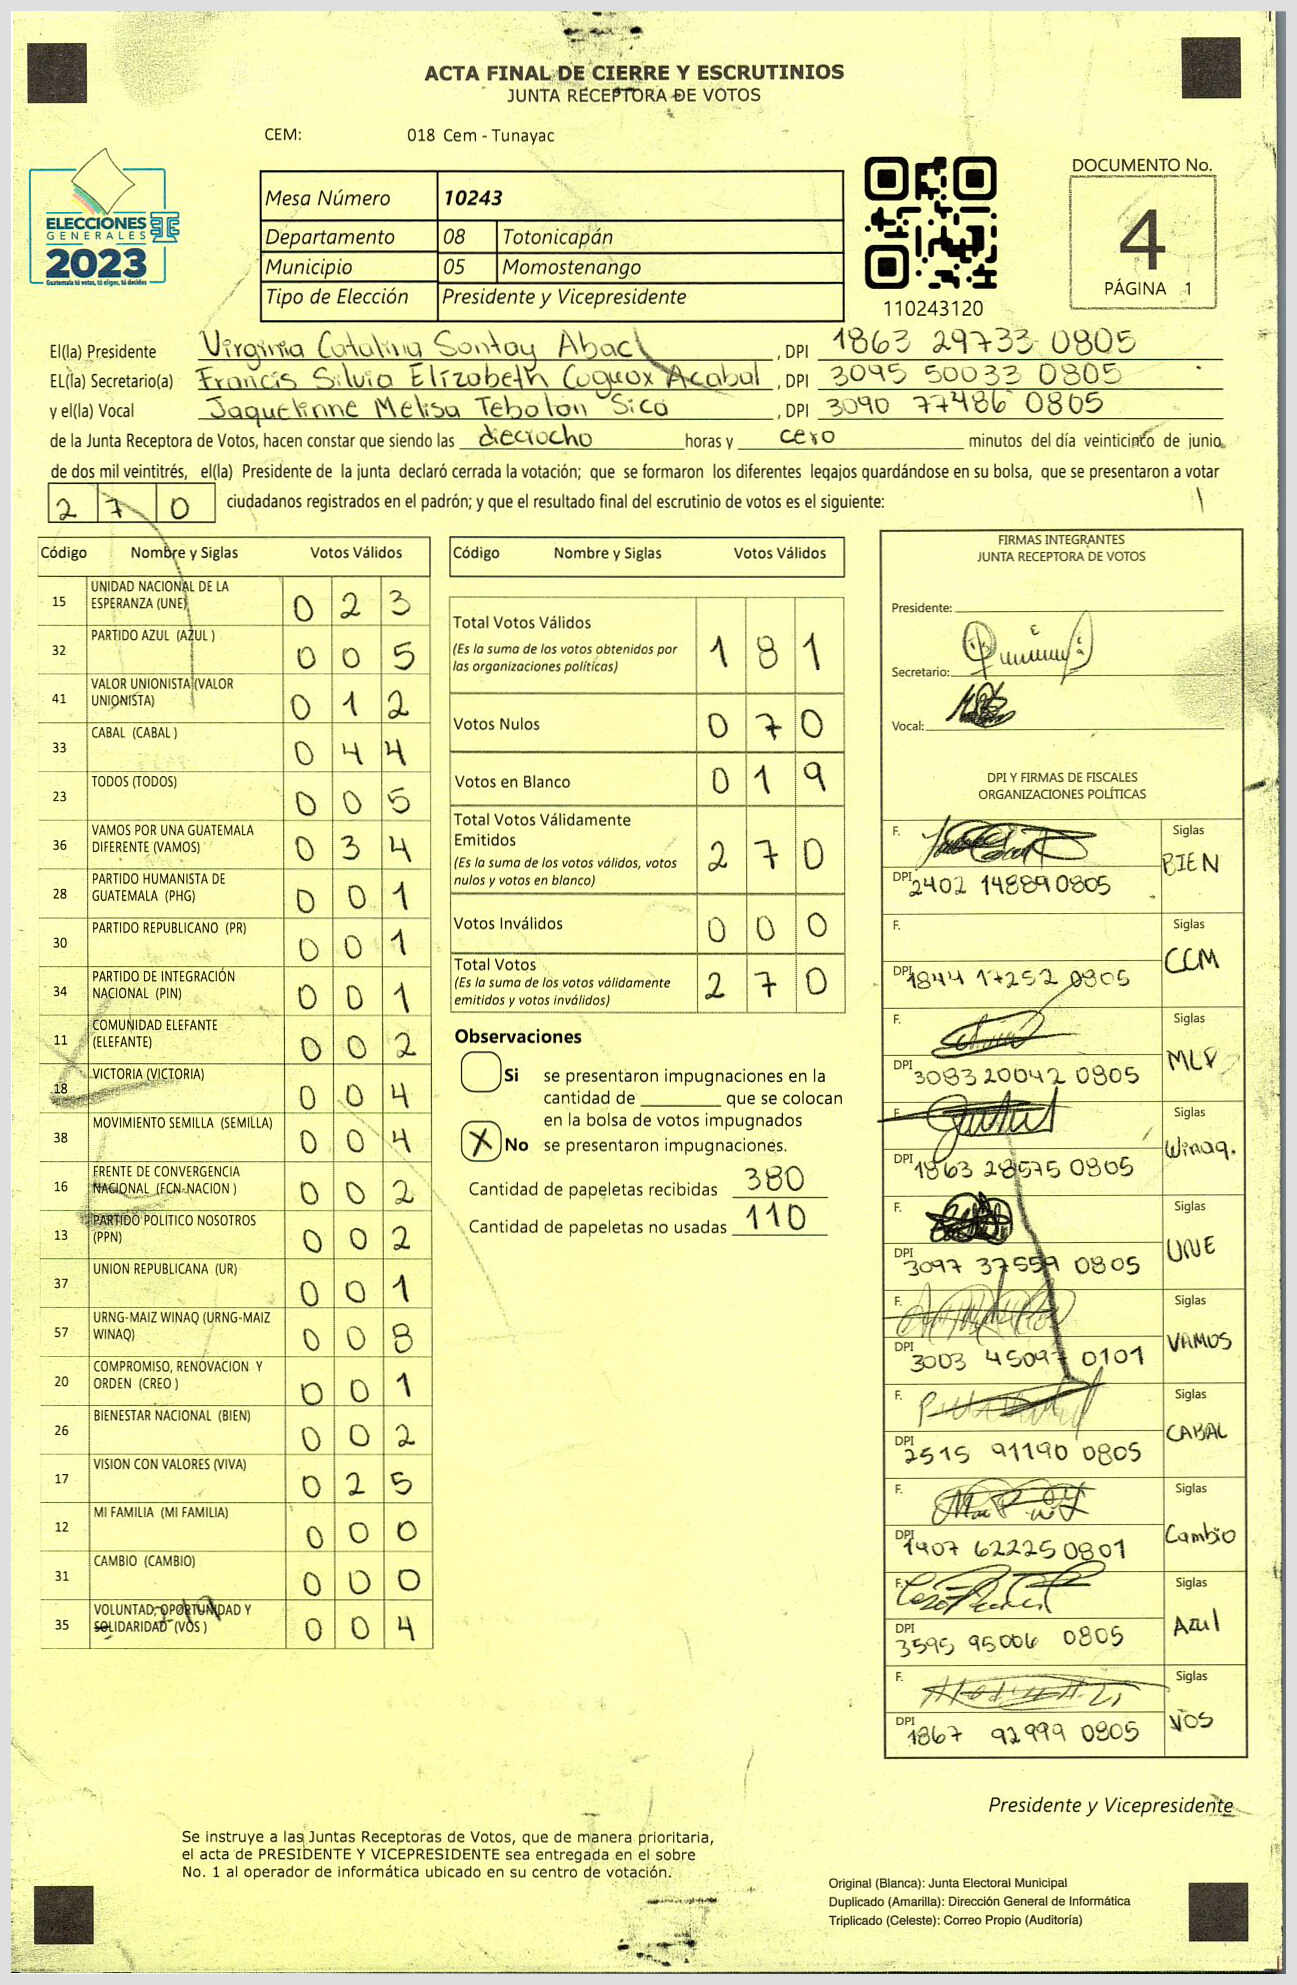 ACTA FINAL DE CIERRE Y ESCRUTINIOS
JUNTA RECEPTORA DE VOTOS
CEM: 018 Cem - Tunayac
ELECCIONES
GENERALES
2023
Guatemala tú votas, tú eliges, tú decides
Mesa Número 10243
Departamento 08 Totonicapán
Municipio 05 Momostenango
Tipo de Elección Presidente y Vicepresidente
110243120
DOCUMENTO No.
4
PÁGINA 1
El(la) Presidente Virginia Catalina Sontay Abac, DPI 1863 29733 0805
EL(la) Secretario(a) Francis Silvia Elizabeth Coguox Acabal, DPI 3095 50033 0805
y el(la) Vocal Jaquelinne Melisa Tebolon Sico, DPI 3090 77486 0805
de la Junta Receptora de Votos, hacen constar que siendo las diecrocho horas y cero minutos del día veinticinco de junio
de dos mil veintitrés, el(la) Presidente de la junta declaró cerrada la votación; que se formaron los diferentes legajos guardándose en su bolsa, que se presentaron a votar
270 ciudadanos registrados en el padrón; y que el resultado final del escrutinio de votos es el siguiente:
Código Nombre y Siglas Votos Válidos
15 UNIDAD NACIONAL DE LA ESPERANZA (UNE) 0 2 3
32 PARTIDO AZUL (AZUL ) 0 0 5
41 VALOR UNIONISTA (VALOR UNIONISTA) 0 1 2
33 CABAL (CABAL ) 0 4 4
23 TODOS (TODOS) 0 0 5
36 VAMOS POR UNA GUATEMALA DIFERENTE (VAMOS) 0 3 4
28 PARTIDO HUMANISTA DE GUATEMALA (PHG) 0 0 1
30 PARTIDO REPUBLICANO (PR) 0 0 1
34 PARTIDO DE INTEGRACIÓN NACIONAL (PIN) 0 0 1
11 COMUNIDAD ELEFANTE (ELEFANTE) 0 0 2
18 VICTORIA (VICTORIA) 0 0 4
38 MOVIMIENTO SEMILLA (SEMILLA) 0 0 4
16 FRENTE DE CONVERGENCIA NACIONAL (FCN-NACION ) 0 0 2
13 PARTIDO POLITICO NOSOTROS (PPN) 0 0 2
37 UNION REPUBLICANA (UR) 0 0 1
57 URNG-MAIZ WINAQ (URNG-MAIZ WINAQ) 0 0 8
20 COMPROMISO, RENOVACION Y ORDEN (CREO ) 0 0 1
26 BIENESTAR NACIONAL (BIEN) 0 0 2
17 VISION CON VALORES (VIVA) 0 2 5
12 MI FAMILIA (MI FAMILIA) 0 0 0
31 CAMBIO (CAMBIO) 0 0 0
35 VOLUNTAD, OPORTUNIDAD Y SOLIDARIDAD (VOS ) 0 0 4
Código Nombre y Siglas Votos Válidos
Total Votos Válidos 1 8 1
(Es la suma de los votos obtenidos por
las organizaciones políticas)
Votos Nulos 0 7 0
Votos en Blanco 0 1 9
Total Votos Válidamente
Emitidos 2 7 0
(Es la suma de los votos válidos, votos
nulos y votos en blanco)
Votos Inválidos 0 0 0
Total Votos 2 7 0
(Es la suma de los votos válidamente
emitidos y votos inválidos)
Observaciones
Si se presentaron impugnaciones en la
cantidad de ________ que se colocan
en la bolsa de votos impugnados
X No se presentaron impugnaciones.
Cantidad de papeletas recibidas 380
Cantidad de papeletas no usadas 110
FIRMAS INTEGRANTES
JUNTA RECEPTORA DE VOTOS
Presidente:
Secretario:
Vocal:
DPI Y FIRMAS DE FISCALES
ORGANIZACIONES POLÍTICAS
F. Siglas
DPI 2402 14889 0805 BIEN
F. Siglas
DPI 1844 17252 0805 CCM
F. Siglas
DPI 3083 20042 0805 MLP
F. Siglas
DPI 1863 28575 0805 Winaq.
F. Siglas
DPI 3097 37559 0805 UNE
F. Siglas
DPI 3003 45097 0101 VAMOS
F. Siglas
DPI 2515 91190 0805 CABAL
F. Siglas
DPI 1907 62225 0801 Cambio
F. Siglas
DPI 3595 95006 0805 Azul
F. Siglas
DPI 1867 92999 0805 VOS
Presidente y Vicepresidente
Se instruye a las Juntas Receptoras de Votos, que de manera prioritaria,
el acta de PRESIDENTE Y VICEPRESIDENTE sea entregada en el sobre
No. 1 al operador de informática ubicado en su centro de votación.
Original (Blanca): Junta Electoral Municipal
Duplicado (Amarilla): Dirección General de Informática
Triplicado (Celeste): Correo Propio (Auditoría)